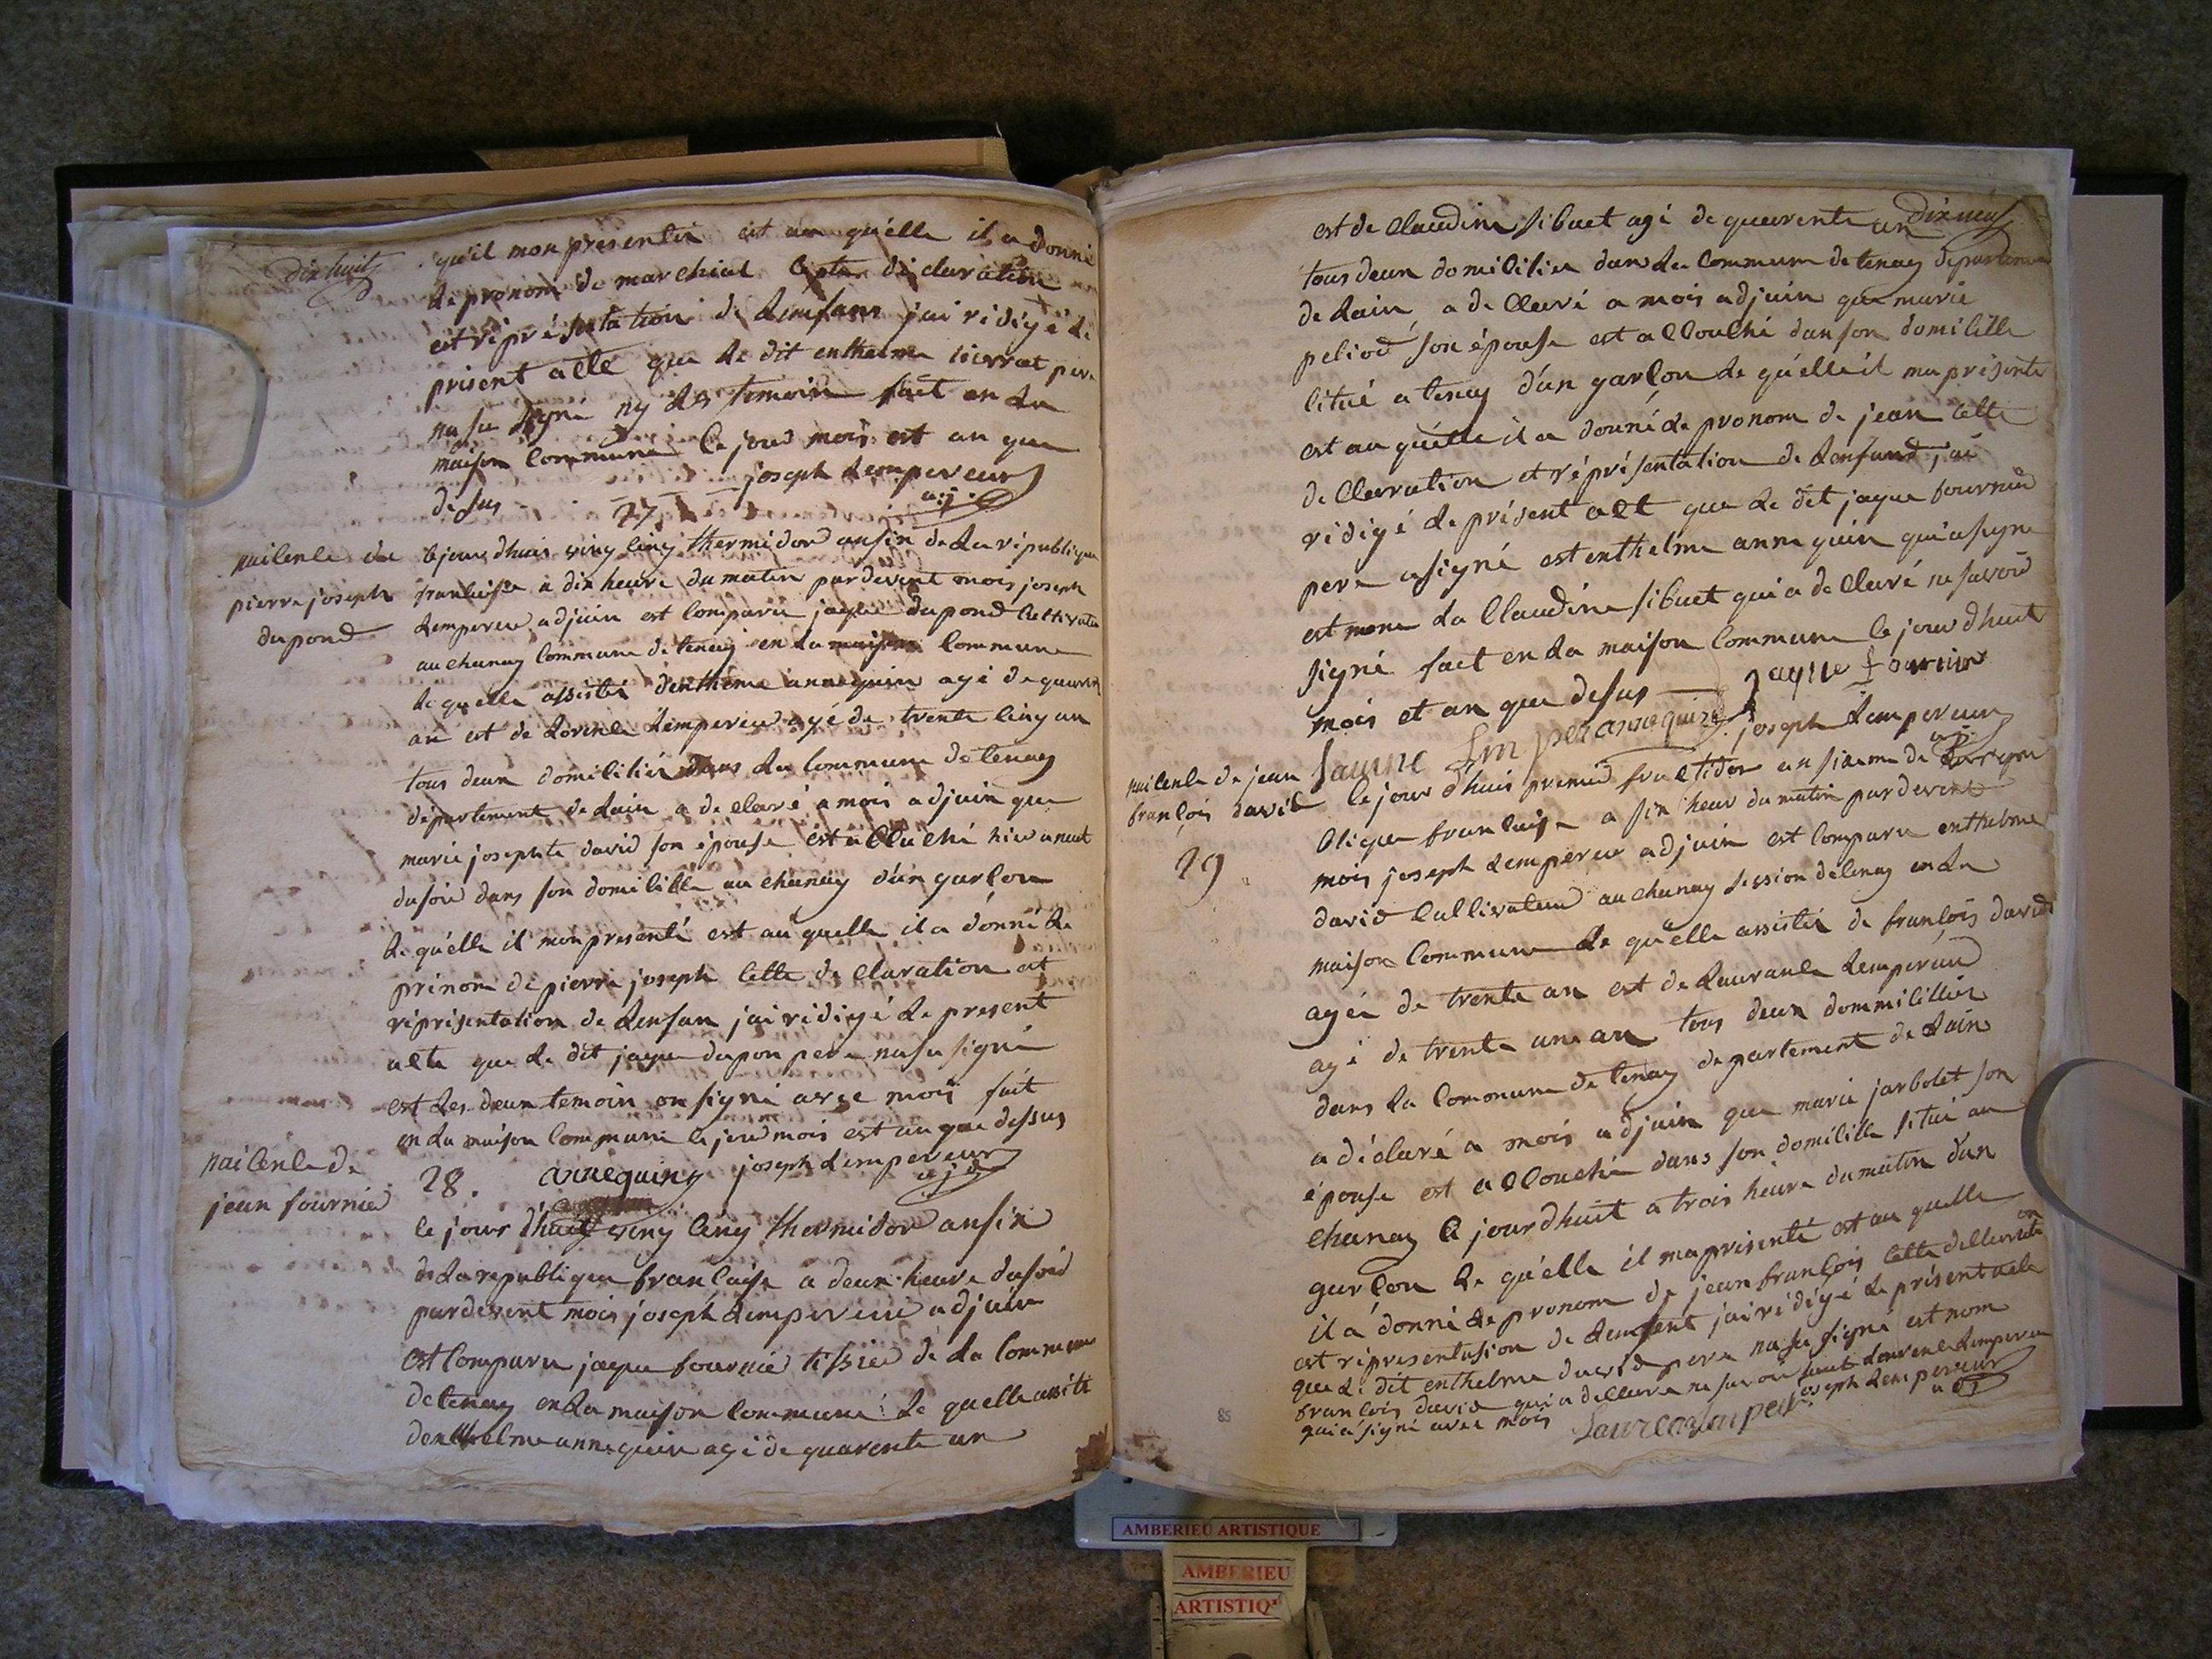 dix huit
qu'il mon presentée est au quélle il a donné
le pronom de marchial cette déclaration
est réprésentation de lenfant jai rédigé le
présent acte que le dit enthelme pere
na su signé ny les temoin fait en la
maison commune le jour mois est an que
desus
joseph lempereur
a.j.
27
naisence de
pierre joseph
dupond
le jour dhuis ving cinq thermidor an six de la république
francaise a dix heure du matin par devent mois joseph
lempereur adjuin est comparu jaque dupond cultivateur
au chanay commune de tenay en la maison commune
le quelle assistée denthéme annequin agé de quarente
an est de lorence lempereur agé de trente cinq an
tous deux domicilié dans la commune de tenay
département de lain a declaré a mois adjuin que
marie josephte david son épouse est accuché hier a neut
du soir dans son domicille au chanay d'un garcon
le quélle il mon presenté est au quelle il a donné le
prinom de pierre joseph cette declaration et
réprisentation de lenfan jai rédigé le present
acte que le dit jaque dupon pere na su signé
est les deux temoin on signé avec mois fait
en la maison commune le jour mois est an que dessus
annequin joseph lempereur
a.j.
naicence de
jean fournié
28.
le jours dhuit ving cinq thermidor an six
de la republique francaise a deux heure du soir
par devent mois joseph lempereur adjuin
est comparu jaque fournié tissier de la commune
de tenay en la maison commune le quelle assité
denthelme annequin agé de quarente an
dix neuf
est de claudine sibuet agé de quarente un
tous deux domicilié dans la commune de tenay département
de lain a declaré a mois adjuin que marie
peliod son épouse est accouché dan son domicille
citué a tenay d'un garcon le quélle il ma présenté
est au quélle il a donné le pronom de jean cette
declaration et réprésentation de lenfand jai
rédigé le présent act que le dit jaque fournié
pere a signé est enthelme annequin qui a signé
est mone la claudine sibuet qui a declaré ne savoir
signé fait en la maison commune le jour dhuit
mois et an que desus
jaque fournier
annequin joseph lempereur
a.j.
naicence de jean
françois david
29
le jour d'huis premier fructidor an sixeme de la répu
blique francaise a six heur du matin par devent
mois joseph lempereur adjuin est comparu enthelme
david cultivateur au chanay session de tenay en la
maison commune le quélle assistée de francois david
agée de trente an est de laurance lempereur
agé de trente une an tous deux dommicillier
dans la commune de tenay departement de lain
a déclaré a mois adjuin que marie jarbolet son
épouse est accouché dans son domicille situé au
chanay le jour dhuit a trois heure du matin d'un
garçon le quélle il ma présenté est au quelle
il a donné le pronom de jean francois cette declaration
est representasion de lenfent jai rédigé le présent acte
que le dit enthelme david pere na su signé est nom
francois david qui a declaré ne savoir lourence lempereur
qui a signé avec mois joseph lempereur
a.j.
85
AMBERIEU ARTISTIQUE
AMBERIEU
ARTISTIQ